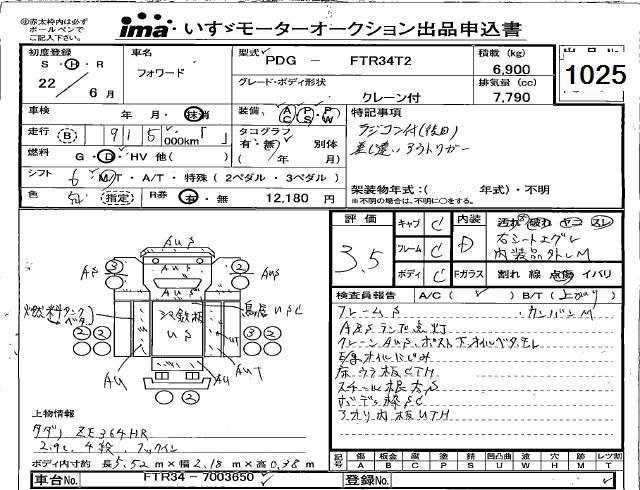 ㊟赤太枠内は必ず
ボールペンで
ご記入下さい。
ima いすゞモーターオークション出品申込書
初度登録
S・H・R
22 6月
車名
フォワード
型式
PDG － FTR34T2
グレード・ボディ形状
クレーン付
積載 (kg)
6,900
排気量 (cc)
7,790
出品No.
1025
車検 年 月・抹消
走行 B 915 000km「 」
燃料 G・D・HV 他( )
シフト 6 M/T・A/T・特殊 (2ペダル・3ペダル)
色 指定 R券 有・無 12,180 円
装備 AC PS PW
タコグラフ 別体
有・無 ( / 年 月)
特記事項
ラジコン付
差し違いアウトリガー
架装物年式：( 年式)・不明
※不明の場合は、不明に○をする。
評価
3.5
キャブ C
フレーム C
ボディ C
内装 D
Fガラス 割れ 線 点傷 イバリ
汚れ 破れ ヤニ スレ
右シートエグレ
内装品外しM
検査員報告 A/C ( ) B/T (上がり)
フレームS カンバンM
ABSランプ点灯
床ウラ板CTH
スチール根太S
アオリ内板UTH
燃料タンク
ベタ
AUS
AS
AUS
3
2
縞鉄板
US
AU
AU
AUT
UT
上物情報
タダノ ZE364HR
2.9t、4段、フックイン
ボディ内寸約 長5.52m×幅2.18m×高0.38m
記号 傷 板金 腐 塗 錆 凹 凹凸曲 穴 跡 レツ割
A B C P S U W H M T
車台No. FTR34－7003650
登録No.